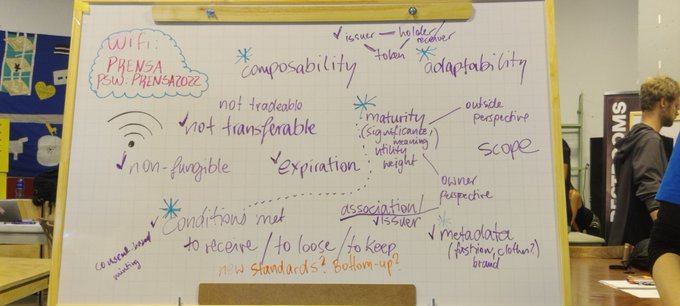 WIFI:
PRENSA
PSW: PRENSA2022
✓ issuer
holder
receiver
token
* composability
* adaptability
not tradeable
✓ not transferable
✓ non-fungible
✓ expiration
* maturity
(significance,
meaning
utility
weight
outside
perspective
scope
owner
perspective
association/
✓ issuer
* Conditions met
to receive / to loose / to keep
consensual
minting
new standards? Bottom-up?
✓ metadata
(fashion, clothes?)
brand
RESTROOMS